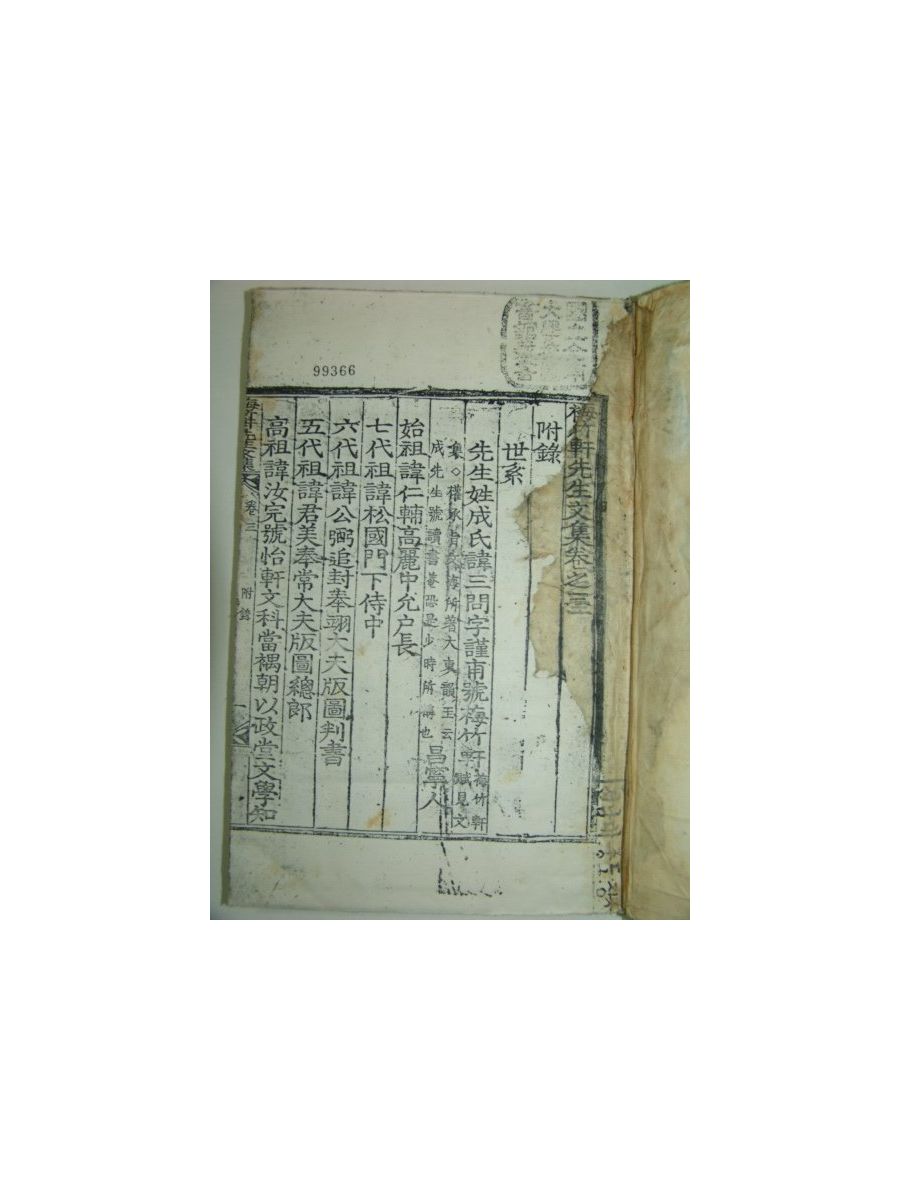 梅竹軒先生文集卷之三
附錄
世系
先生姓成氏諱三問字謹甫號梅竹軒 梅竹軒賦見文
集◇權 所著大東韻玉云
成先生號讀書菴恐是少時所稱也 昌寧人
始祖諱仁輔高麗中允户長
七代祖諱松國門下侍中
六代祖諱公弼追封奉翊大夫版圖判書
五代祖諱君美奉常大夫版圖總郎
高祖諱汝完號怡軒文科當禑朝以政堂文學知
梅竹軒先生文集 卷三 附錄 一
99366